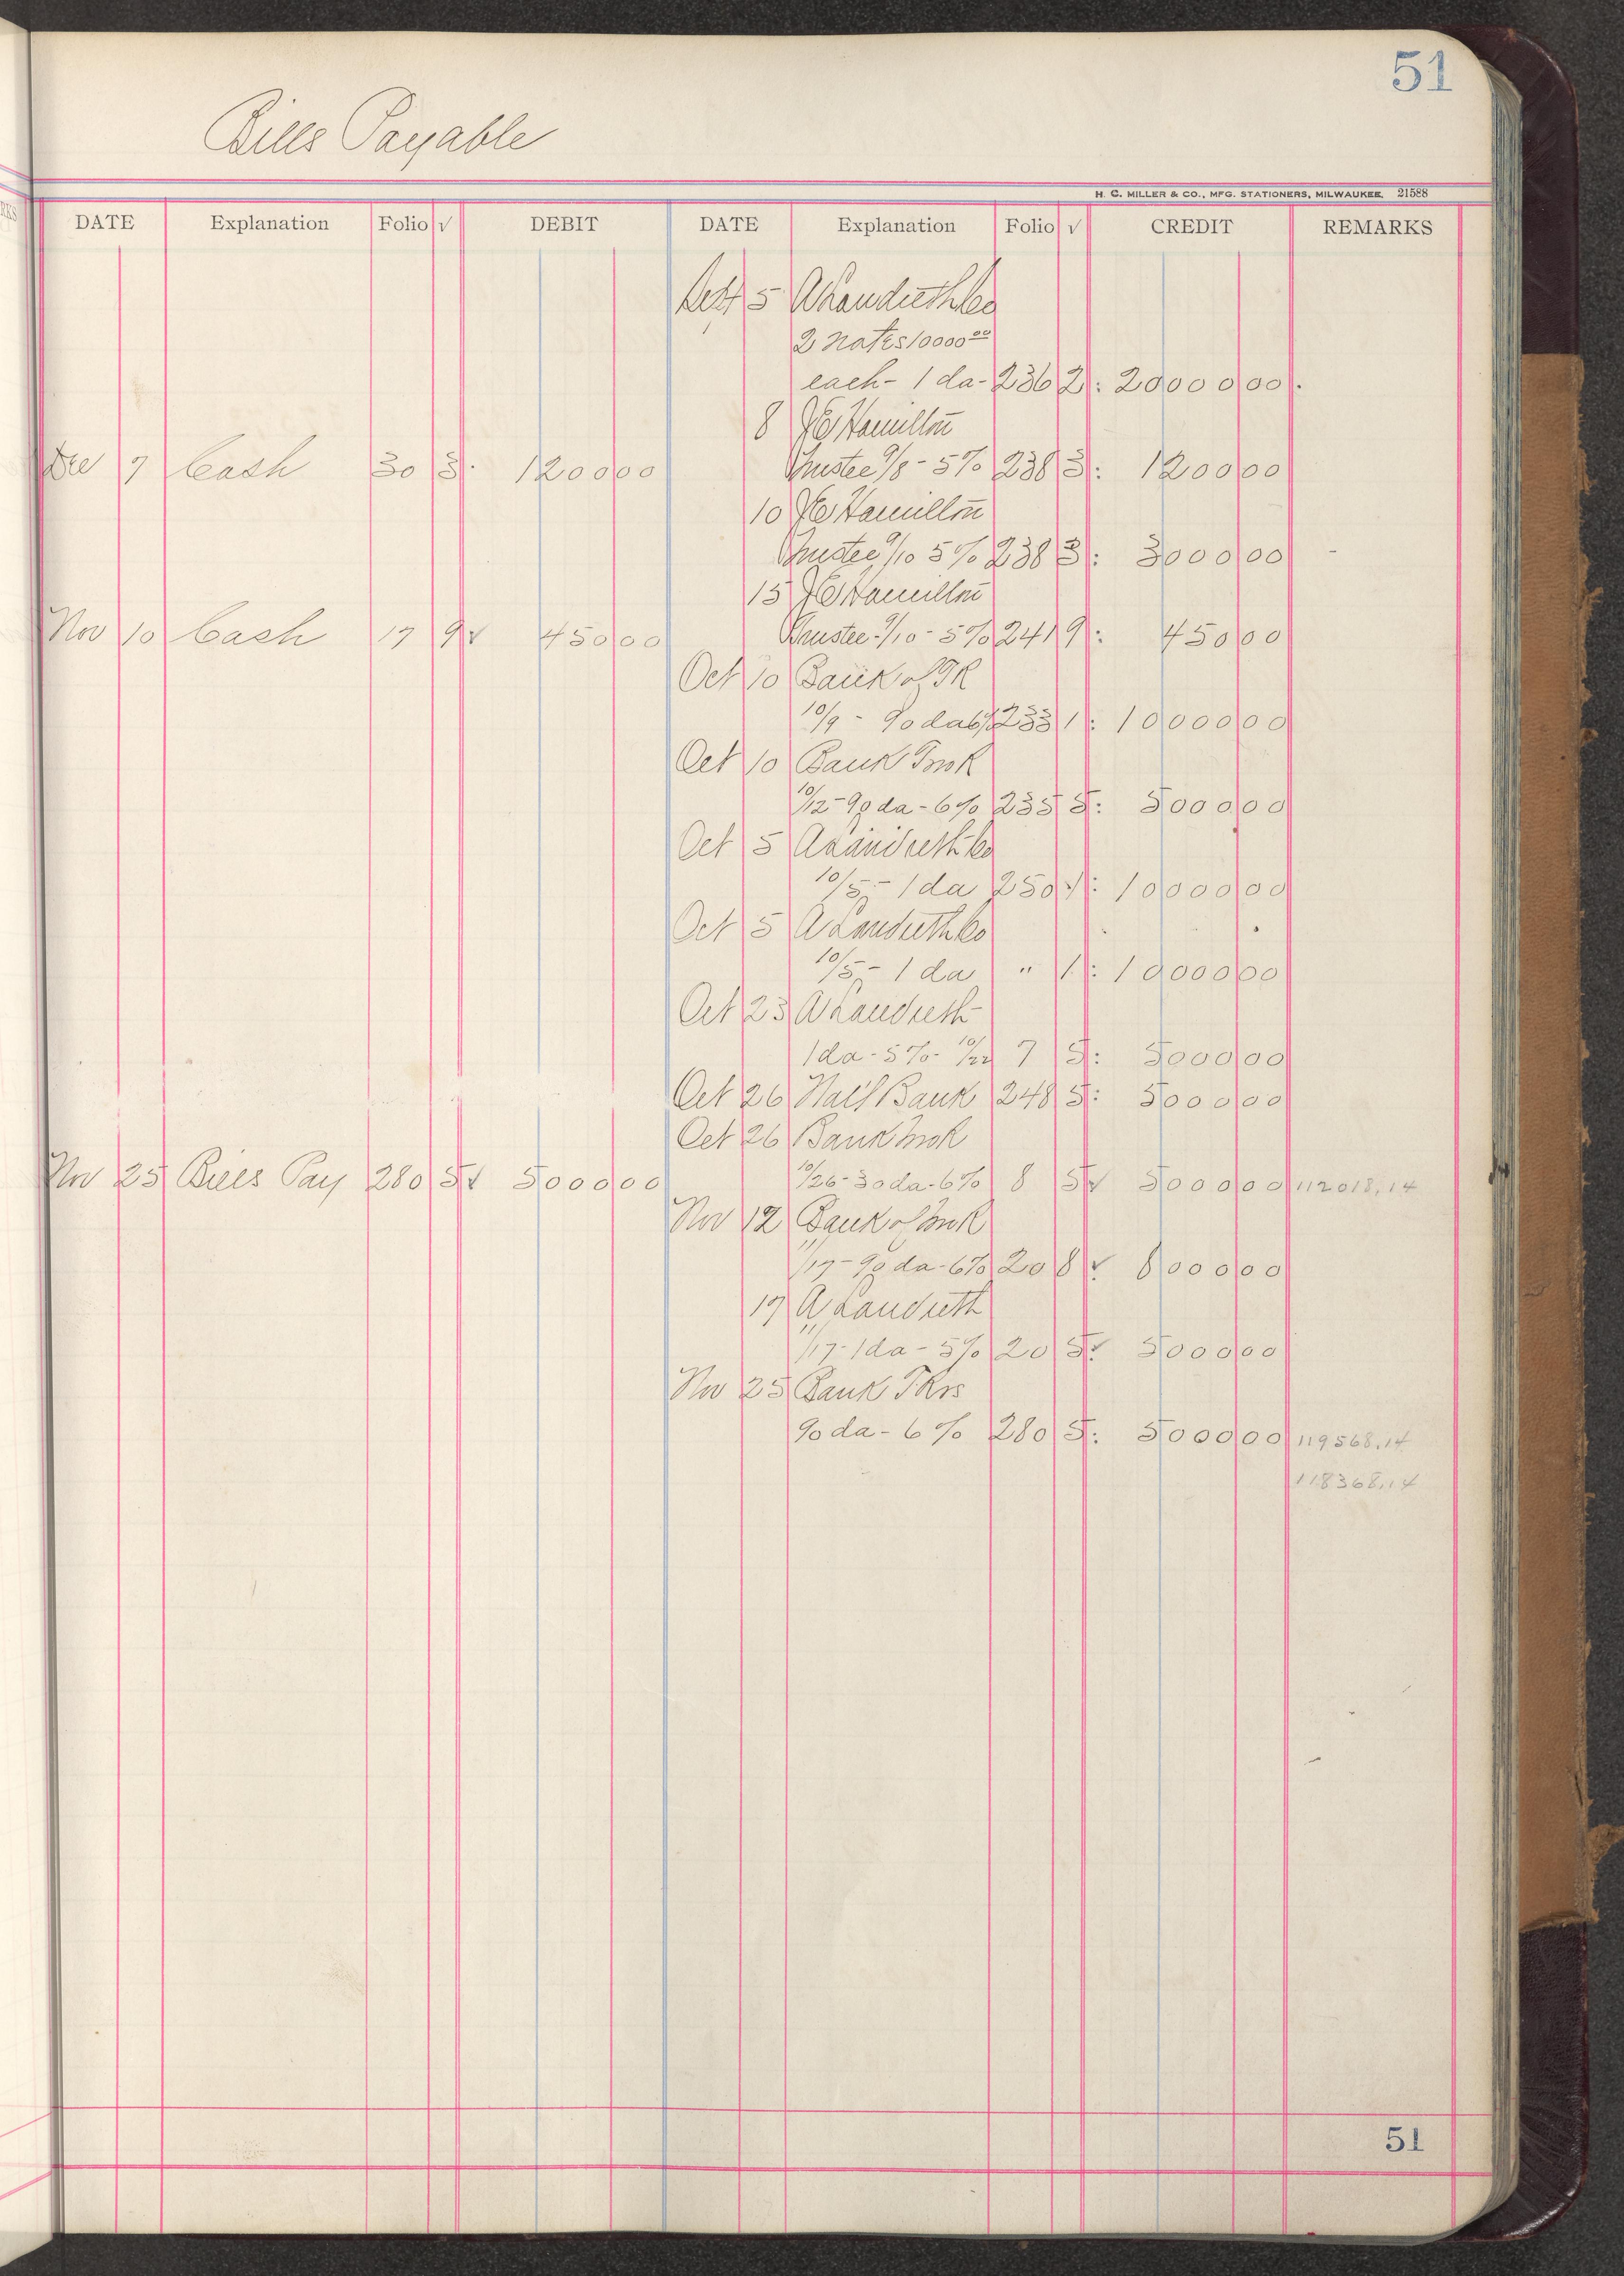 51
Bills Payable
H. C. MILLER & CO., MFG. STATIONERS, MILWAUKEE. 21588
DATE Explanation Folio √ DEBIT DATE Explanation Folio √ CREDIT REMARKS
Sept 5 A Landreth Co
2 Notes 10000 00
each - 1 da - 236 2 : 20000 00
8 J E Hamilton
Dec 7 Cash 30 3 1200 00 Trustee 9/8 - 5% 238 3 : 1200 00
10 J E Hamilton
Trustee 9/10 5% 238 3 : 3000 00
15 J E Hamilton
Nov 10 Cash 17 9 √ 450 00 Trustee - 9/10 - 5% 241 9 : 450 00
Oct 10 Bank of TR
10/9 - 90 da 6% 233 1 : 10000 00
Oct 10 Bank TmR
10/12 - 90 da - 6% 235 5 : 5000 00
Oct 5 A Landreth Co
10/5 - 1 da 250 1 : 10000 00
Oct 5 A Landreth Co
10/5 - 1 da " 1 : 10000 00
Oct 23 A Landreth
1 da - 5% - 10/22 7 5 : 5000 00
Oct 26 Nat'l Bank 248 5 : 5000 00
Oct 26 Bank
Nov 25 Bills Pay 280 5 √ 5000 00 10/26 - 30 da - 6% 8 5 √ 5000 00 112018.14
Nov 12 Bank of
11/17 - 90 da - 6% 20 8 √ 8000 00
17 A Landreth
11/17 - 1 da - 5% 20 5 √ 5000 00
Nov 25 Bank TRrs
90 da - 6% 280 5 : 5000 00 119568.14
118368.14
51